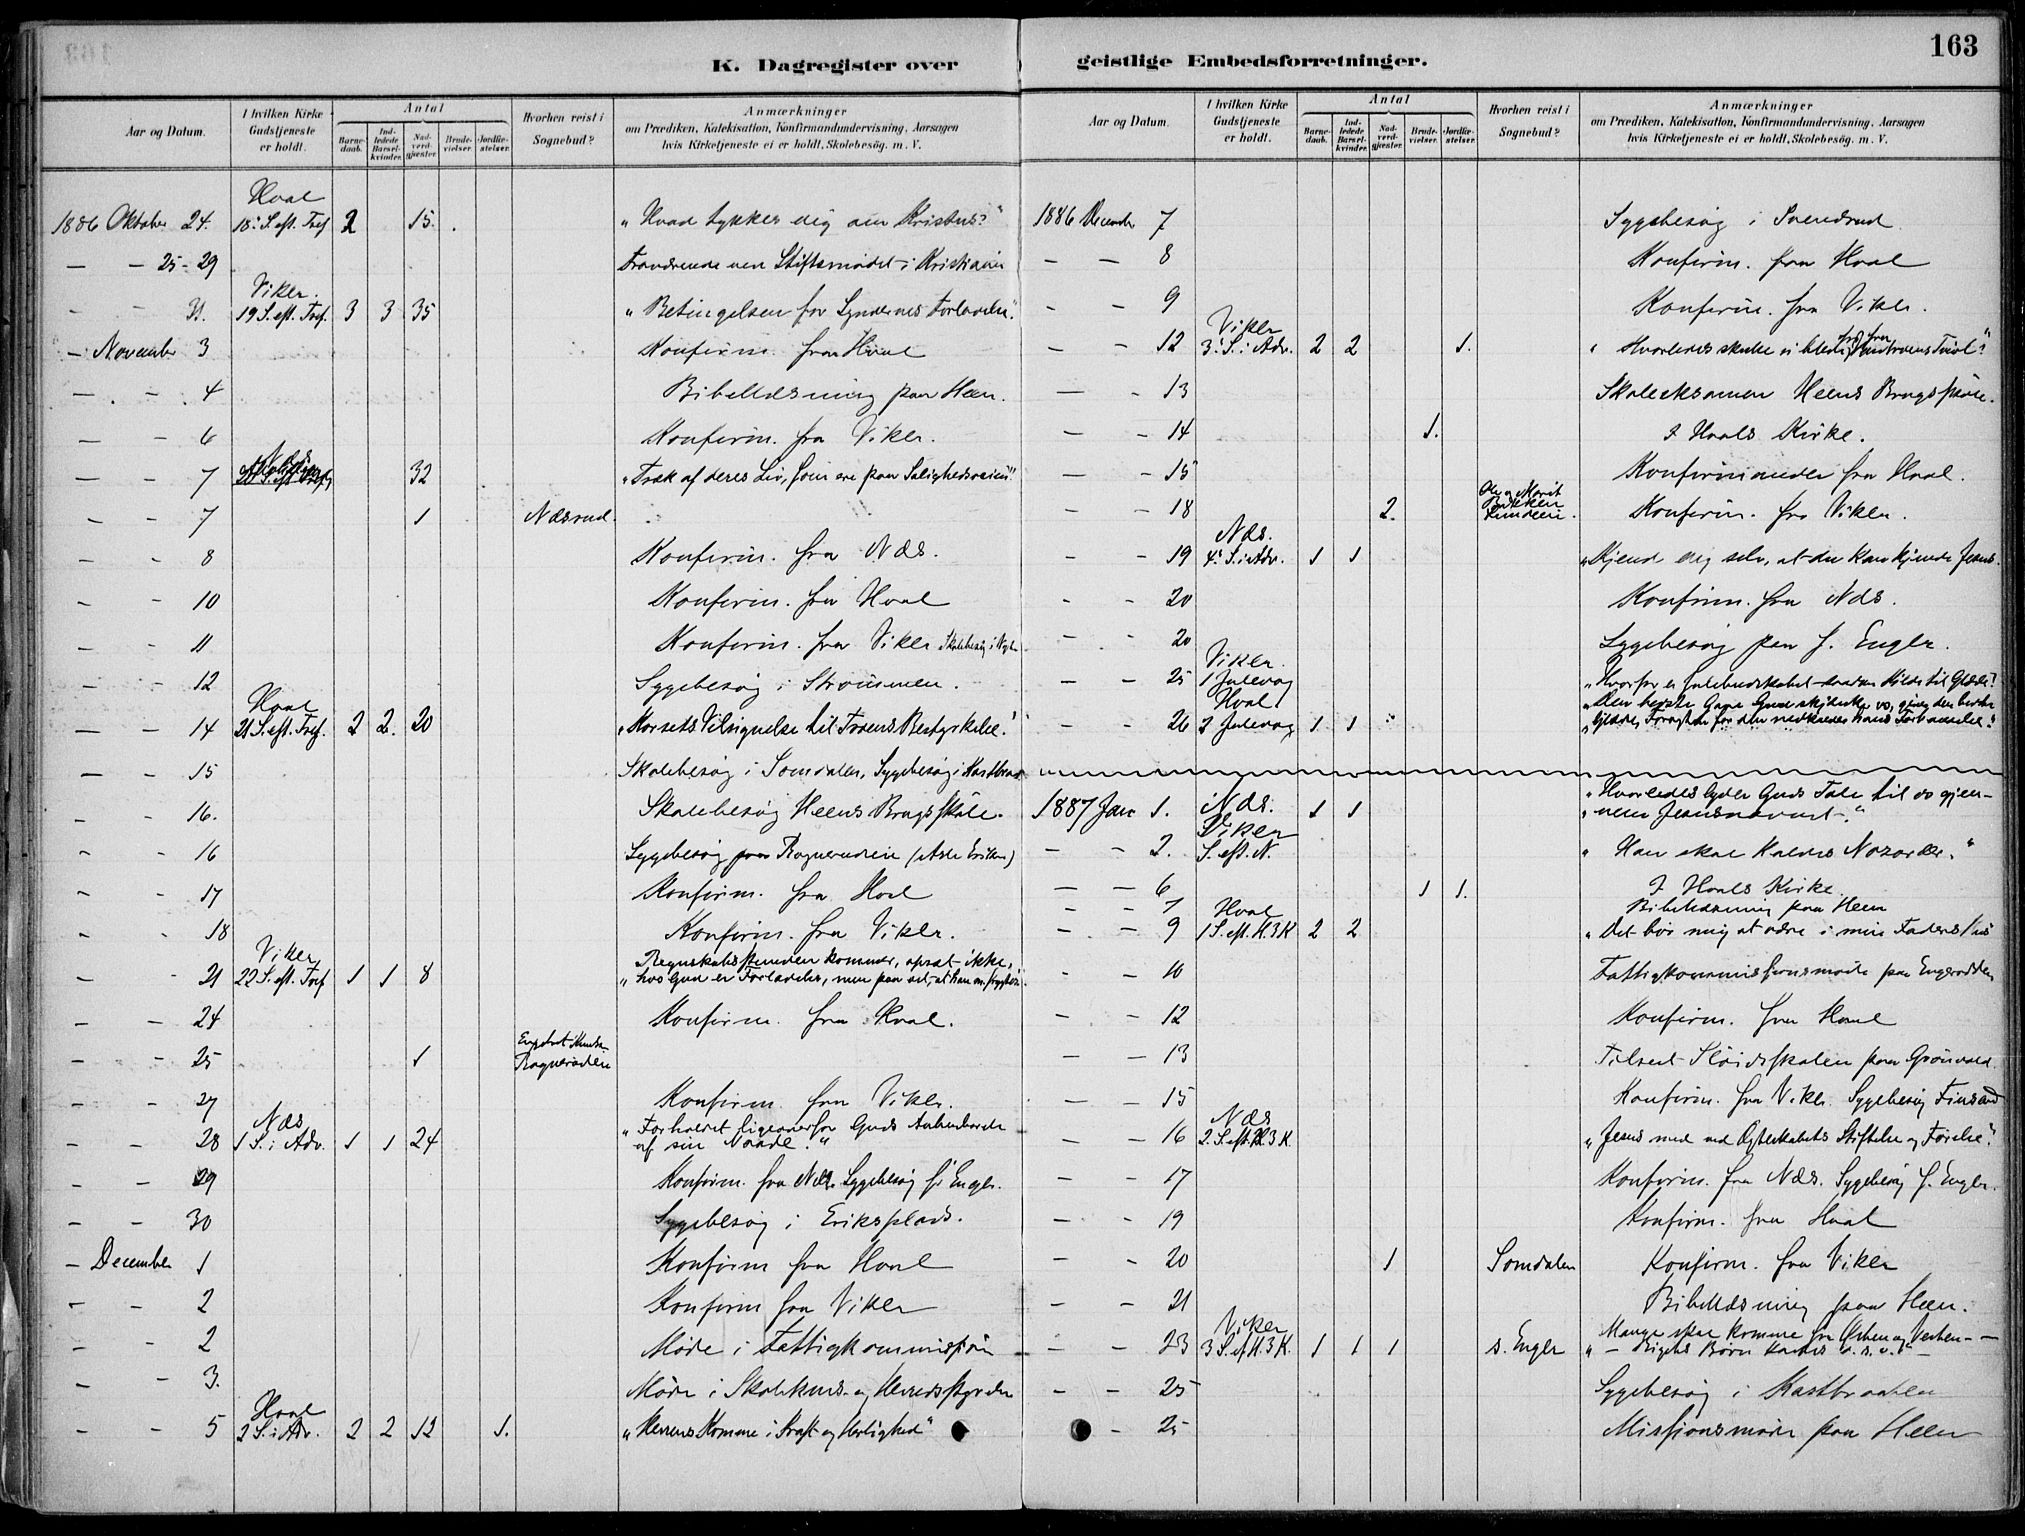 163
K. Dagregister over geistlige Embedsforretninger.
Aar og Datum.
I hvilken Kirke Gudstjeneste er holdt.
Antal
Barnedaab.
Indledede Barselkvinder.
Nadverdgjæster.
Brudevielser.
Jordfæstelser.
Hvorhen reist i Sognebud?
Anmærkninger
om Prædiken, Katekisation, Konfirmandundervisning, Aarsagen
hvis Kirketjeneste ei er holdt, Skolebesøg. m. V.
1886 Oktober 24. Hval 18. S. eft. Tref. 2 15. "Hvad tykkes dig om Kristus?"
— — 25-29 Stiftsmødet i Kristiania
— — 31. Viker. 19 S. eft. Tref. 3 3 35 "Betingelsen for Syndernes Forladelse".
— November 3 Konfirm. fra Hval
— — 4 Bibellæsning paa Heen.
— — 6 Konfirm. fra Viker.
— — 7 32 "Træk af deres Liv, som ere paa Salighedsveien"
— — 7 1 Næsrud.
— — 8 Konfirm. fra Næs.
— — 10 Konfirm. fra Hval
— — 11 Konfirm. fra Viker Skolebesøg i
— — 12 Sygebesøg i Strømmen.
— — 14 Hval 21 S. eft. Tref. 2 2. 20 "Korsets Velsignelse til Troens Bestyrkelse."
— — 15 Skolebesøg i Somdalen, Sygebesøg i Kastbraat
— — 16. Skolebesøg Heens Brugsskole.
— — 16 Sygebesøg paa Ragnerudeie
— — 17 Konfirm. fra Hval
— — 18 Konfirm. fra Viker.
— — 21 Viker 22 S. eft. Tref 1 1 8 Regnskabsstunden kommer, opsæt ikke,
"hos Gud er Forladelse, men paa det, at han
— — 24 Konfirm. fra Hval.
— — 25 1 Ragnerudeie
— — 27 Konfirm. fra Viker.
— — 28 Næs 1 S. i Adv. 1 1 24 "Forholdet ligeoverfor Guds Anbud
af sin Naade."
— — 29 Konfirm. fra Næs. Sygebesøg Engler.
— — 30 Sygebesøg i Eriksplads.
— December 1 Konfirm fra Hval
— — 2 Konfirm fra Viker
— — 2 Møde i Fattigkommission
— — 3. Møde i Skolekom. og Herredsstyrelse
— — 5 Hval 2 S. i Adv. 2 2 12 1. "Herrens Komme i Kraft og Herlighed"
Aar og Datum.
I hvilken Kirke Gudstjeneste er holdt.
Antal
Barnedaab.
Indledede Barselkvinder.
Nadverdgjæster.
Brudevielser.
Jordfæstelser.
Hvorhen reist i Sognebud?
Anmærkninger
om Prædiken, Katekisation, Konfirmandundervisning, Aarsagen
hvis Kirketjeneste ei er holdt, Skolebesøg. m. V.
1886 December 7 Sygebesøg i Svendsrud
— — 8 Konfirm. fra Hval
— — 9 Konfirm. fra Viker.
— — 12 Viker 3. S. i Adv. 2 2 1. "Hvorledes skulle vi blive fri fra Vantroens Tvivl?"
— — 13 Skoleeksamen Heens Brugsskole.
— — 14 1. I Hvals Kirke.
— — 15 Konfirmander fra Hval.
— — 18 2. Ole og Marit Konfirm. fra Viker.
— — 19 Næs. 4. S. i Adv. 1 1 "Kjend dig selv, at du kan kjende Jesus.
— — 20 Konfirm. fra Næs.
— — 20 Sygebesøg paa S. Engler.
— — 25 Viker 1 Juledag "Hvorfor er Julebudskabet saadan Kilde til Glæde?
— — 26 Hval 2 Juledag 1 1 " "Den bedste Gave Gud skjænker os, giver den bedste
Glæde,
1887 Jan 1. Næs. 1 1 "Hvorledes lyder Guds Tale til os gjen-
nem Jesusnavnet."
— — 2. Viker S. eft. N. "Han skal kaldes Nazaræer."
— — 6 1 1. I Hvals Kirke
— — 7 Bibellæsning paa Heen
— — 9 Hval 1 S. eft. H.3K 2 2 "Det bør mig at være i min Faders Hus
— — 10 Fattigkommissionsmøde paa
— — 12 Konfirm. fra Hval
— — 13 Tilseet Sløidskolen paa Grønvold
— — 15 Konfirm. fra Viker. Sygebesøg Finsand
— — 16 Næs 2. S. eft. H.3K. "Jesus med ved Ægteskabets Stiftelse og Førelse".
— — 17 Konfirm. fra Næs. Sygebesøg S. Engler.
— — 19 Konfirm. fra Hval
— — 20 1 Somdalen Konfirm. fra Viker
— — 21 Bibellæsning paa Heen.
— — 23 Viker 3 S. ef H.3K. 1 1 1 S. Engler Mange skal komme fra Østen og Vesten —
" — Rigets Børn kastes o. s. v. "
— — 25 Sygebesøg i Kastbraaten
— — 25 Missionsmøde paa Heen